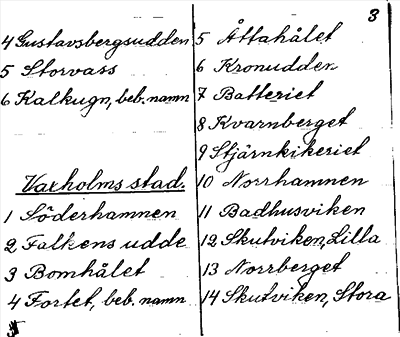 3
4 Gustavsbergsudden
5 Storvass
6 Kalkugn, beb. namn
Vaxholms stad.
1 Söderhamnen
2 Falkens udde
3 Bomhålet
4 Fortet, beb. namn
5
5 Åttahålet
6 Kronudden
7 Batteriet
8 Kvarnberget
9 Stjärnkikeriet
10 Norrhamnen
11 Badhusviken
12 Skutviken, Lilla
13 Norrberget
14 Skutviken, Stora